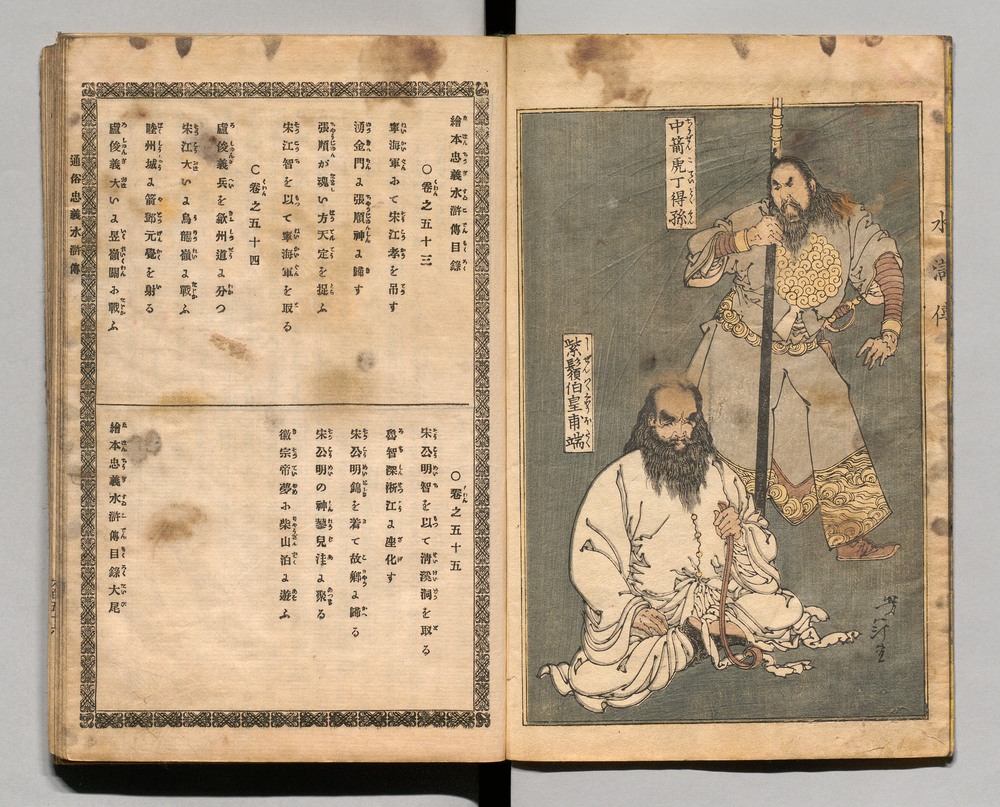 水滸伝
中箭虎丁得孫
紫髯伯皇甫端
繪本忠義水滸傳目錄
○卷之五十三
寧海軍に宋江孝を吊す
湧金門に張順神に歸す
張順が魂い方天定を捉ふ
宋江智を以て寧海軍を取る
○卷之五十四
盧俊義兵を歙州道に分つ
宋江大いに烏龍嶺に戰ふ
睦州城に箭鄧元覺を射る
盧俊義大いに昱嶺關に戰ふ
通俗忠義水滸傳
○卷之五十五
宋公明智を以て淸溪洞を取る
魯智深淅江に座化す
宋公明錦を着て故鄕に歸る
宋公明の神蓼兒洼に聚る
徽宗帝夢に梁山泊に遊ふ
繪本忠義水滸傳目錄大尾